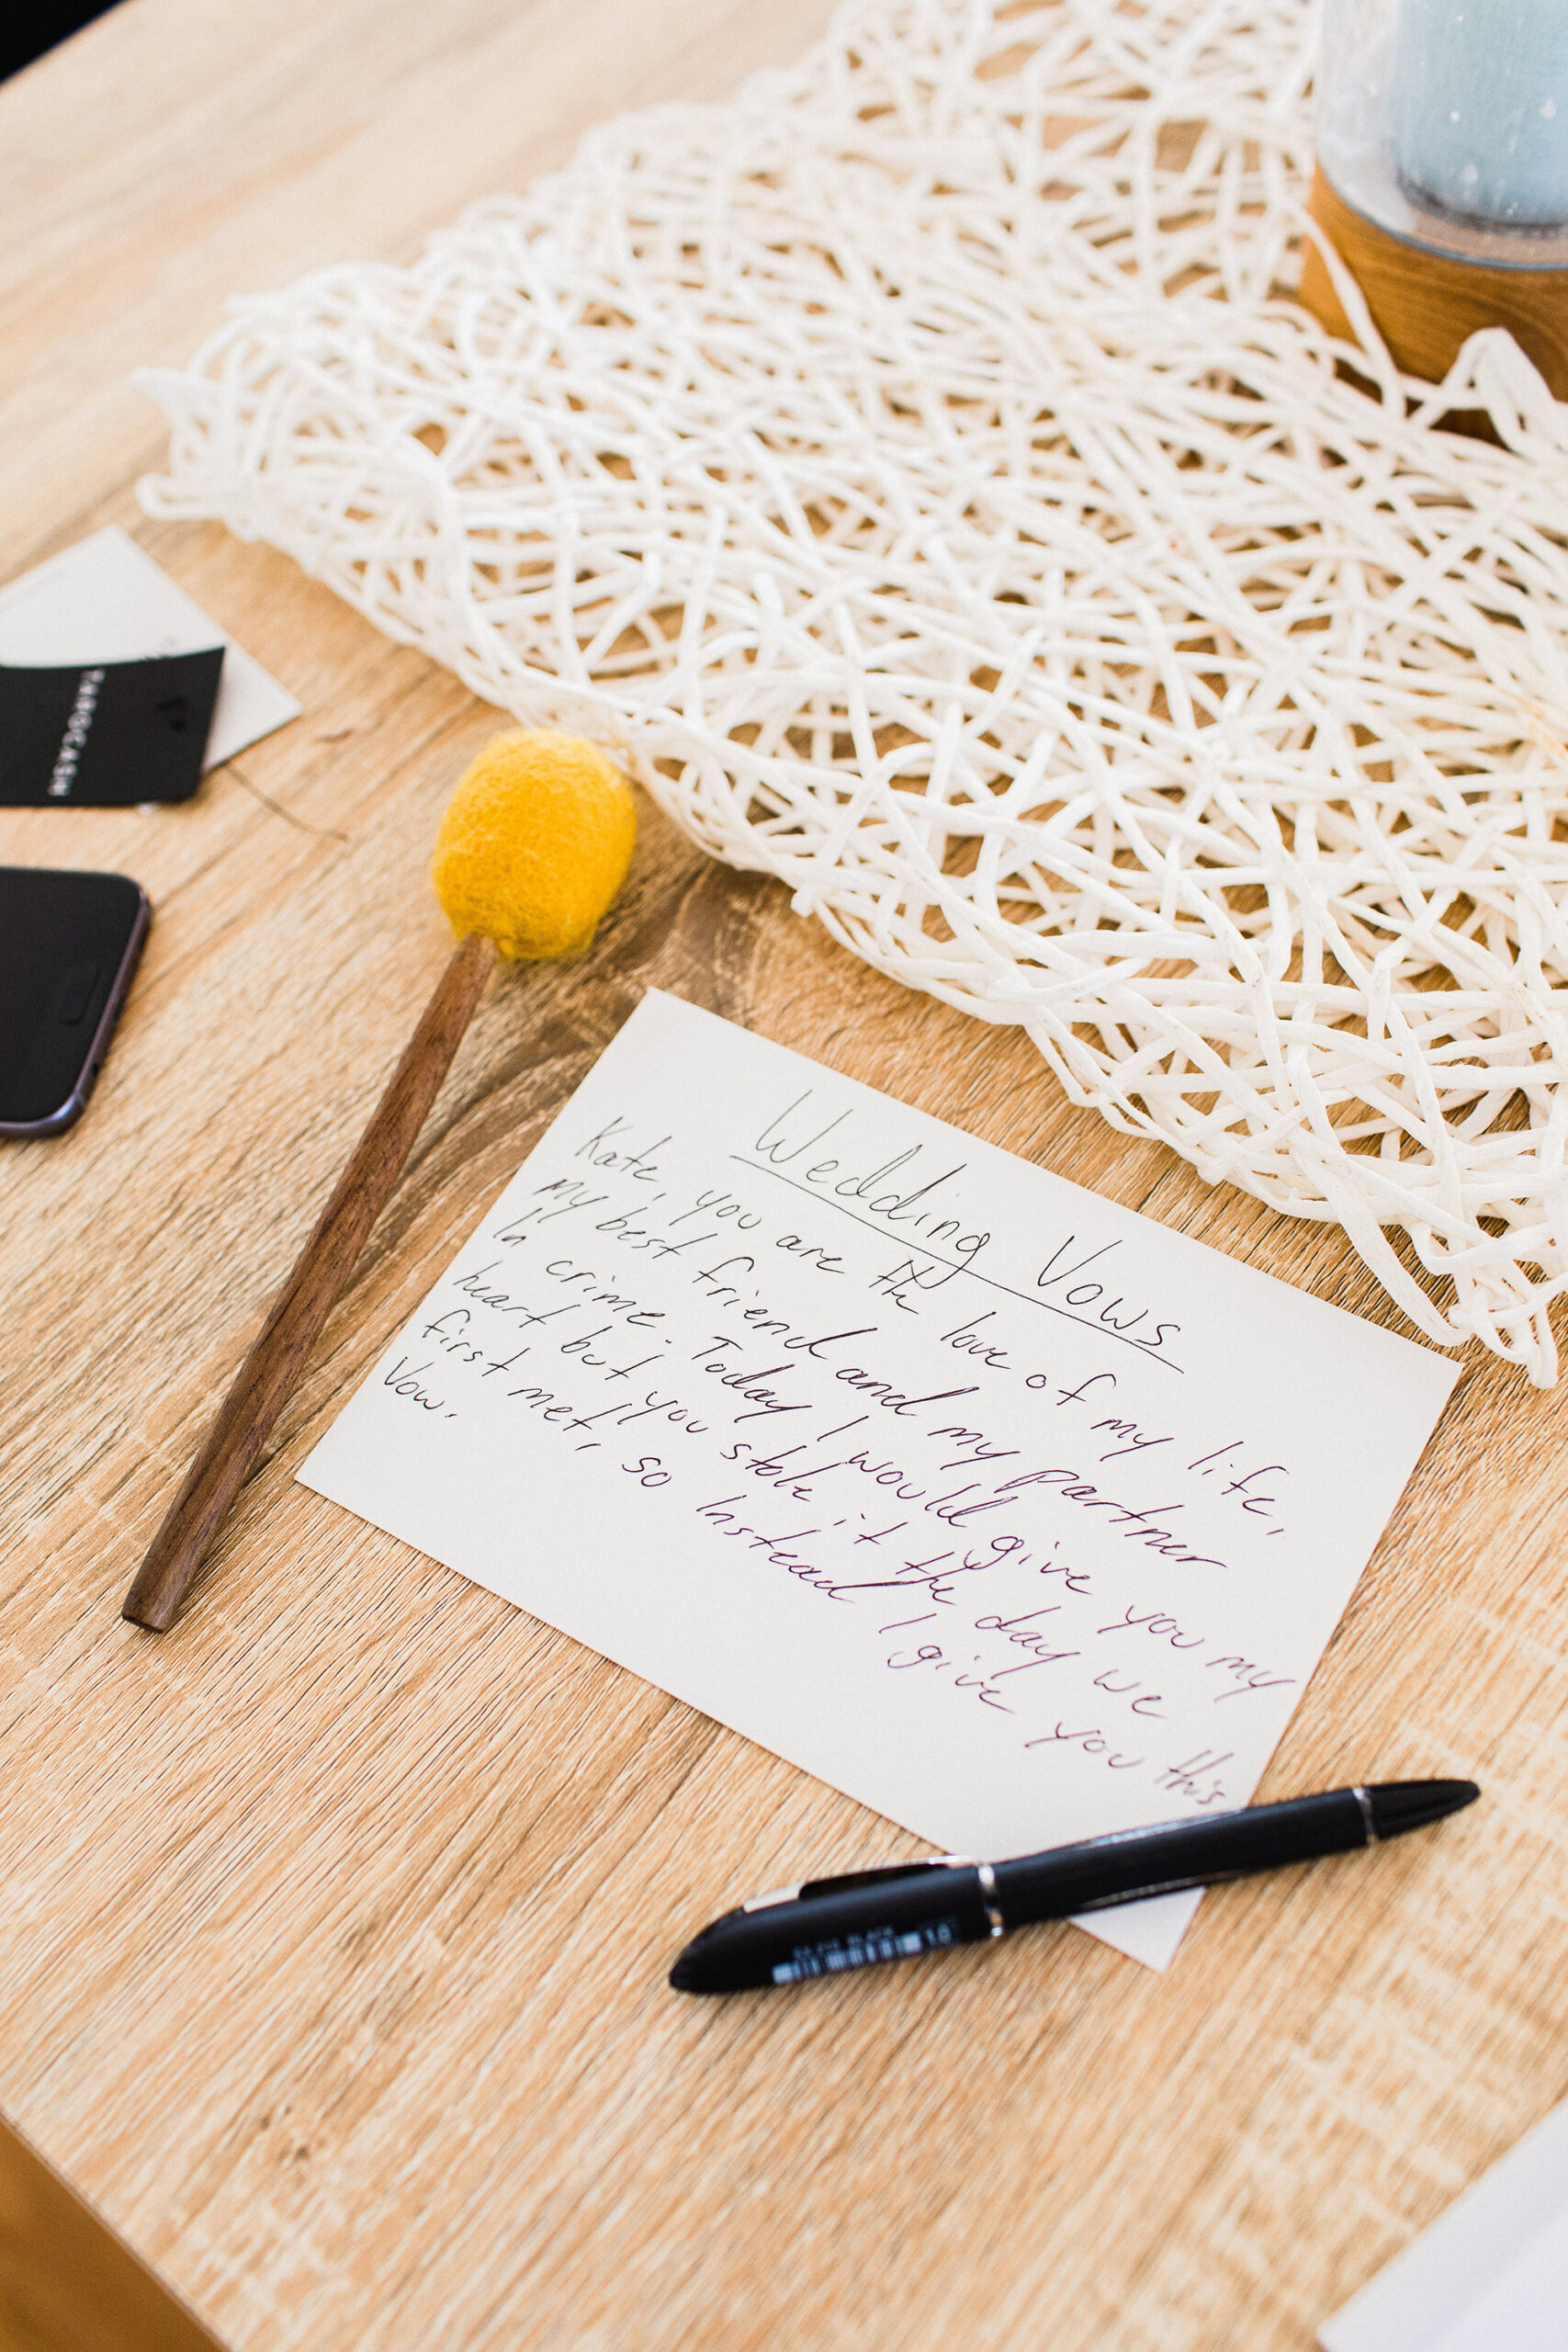 TAROCASH
Wedding Vows
Kate, you are the love of my life,
my best friend and my partner
In crime. Today I would give you my
heart but you stole it the day we
first met, so Instead I give you this
Vow.
BLACK 1.0